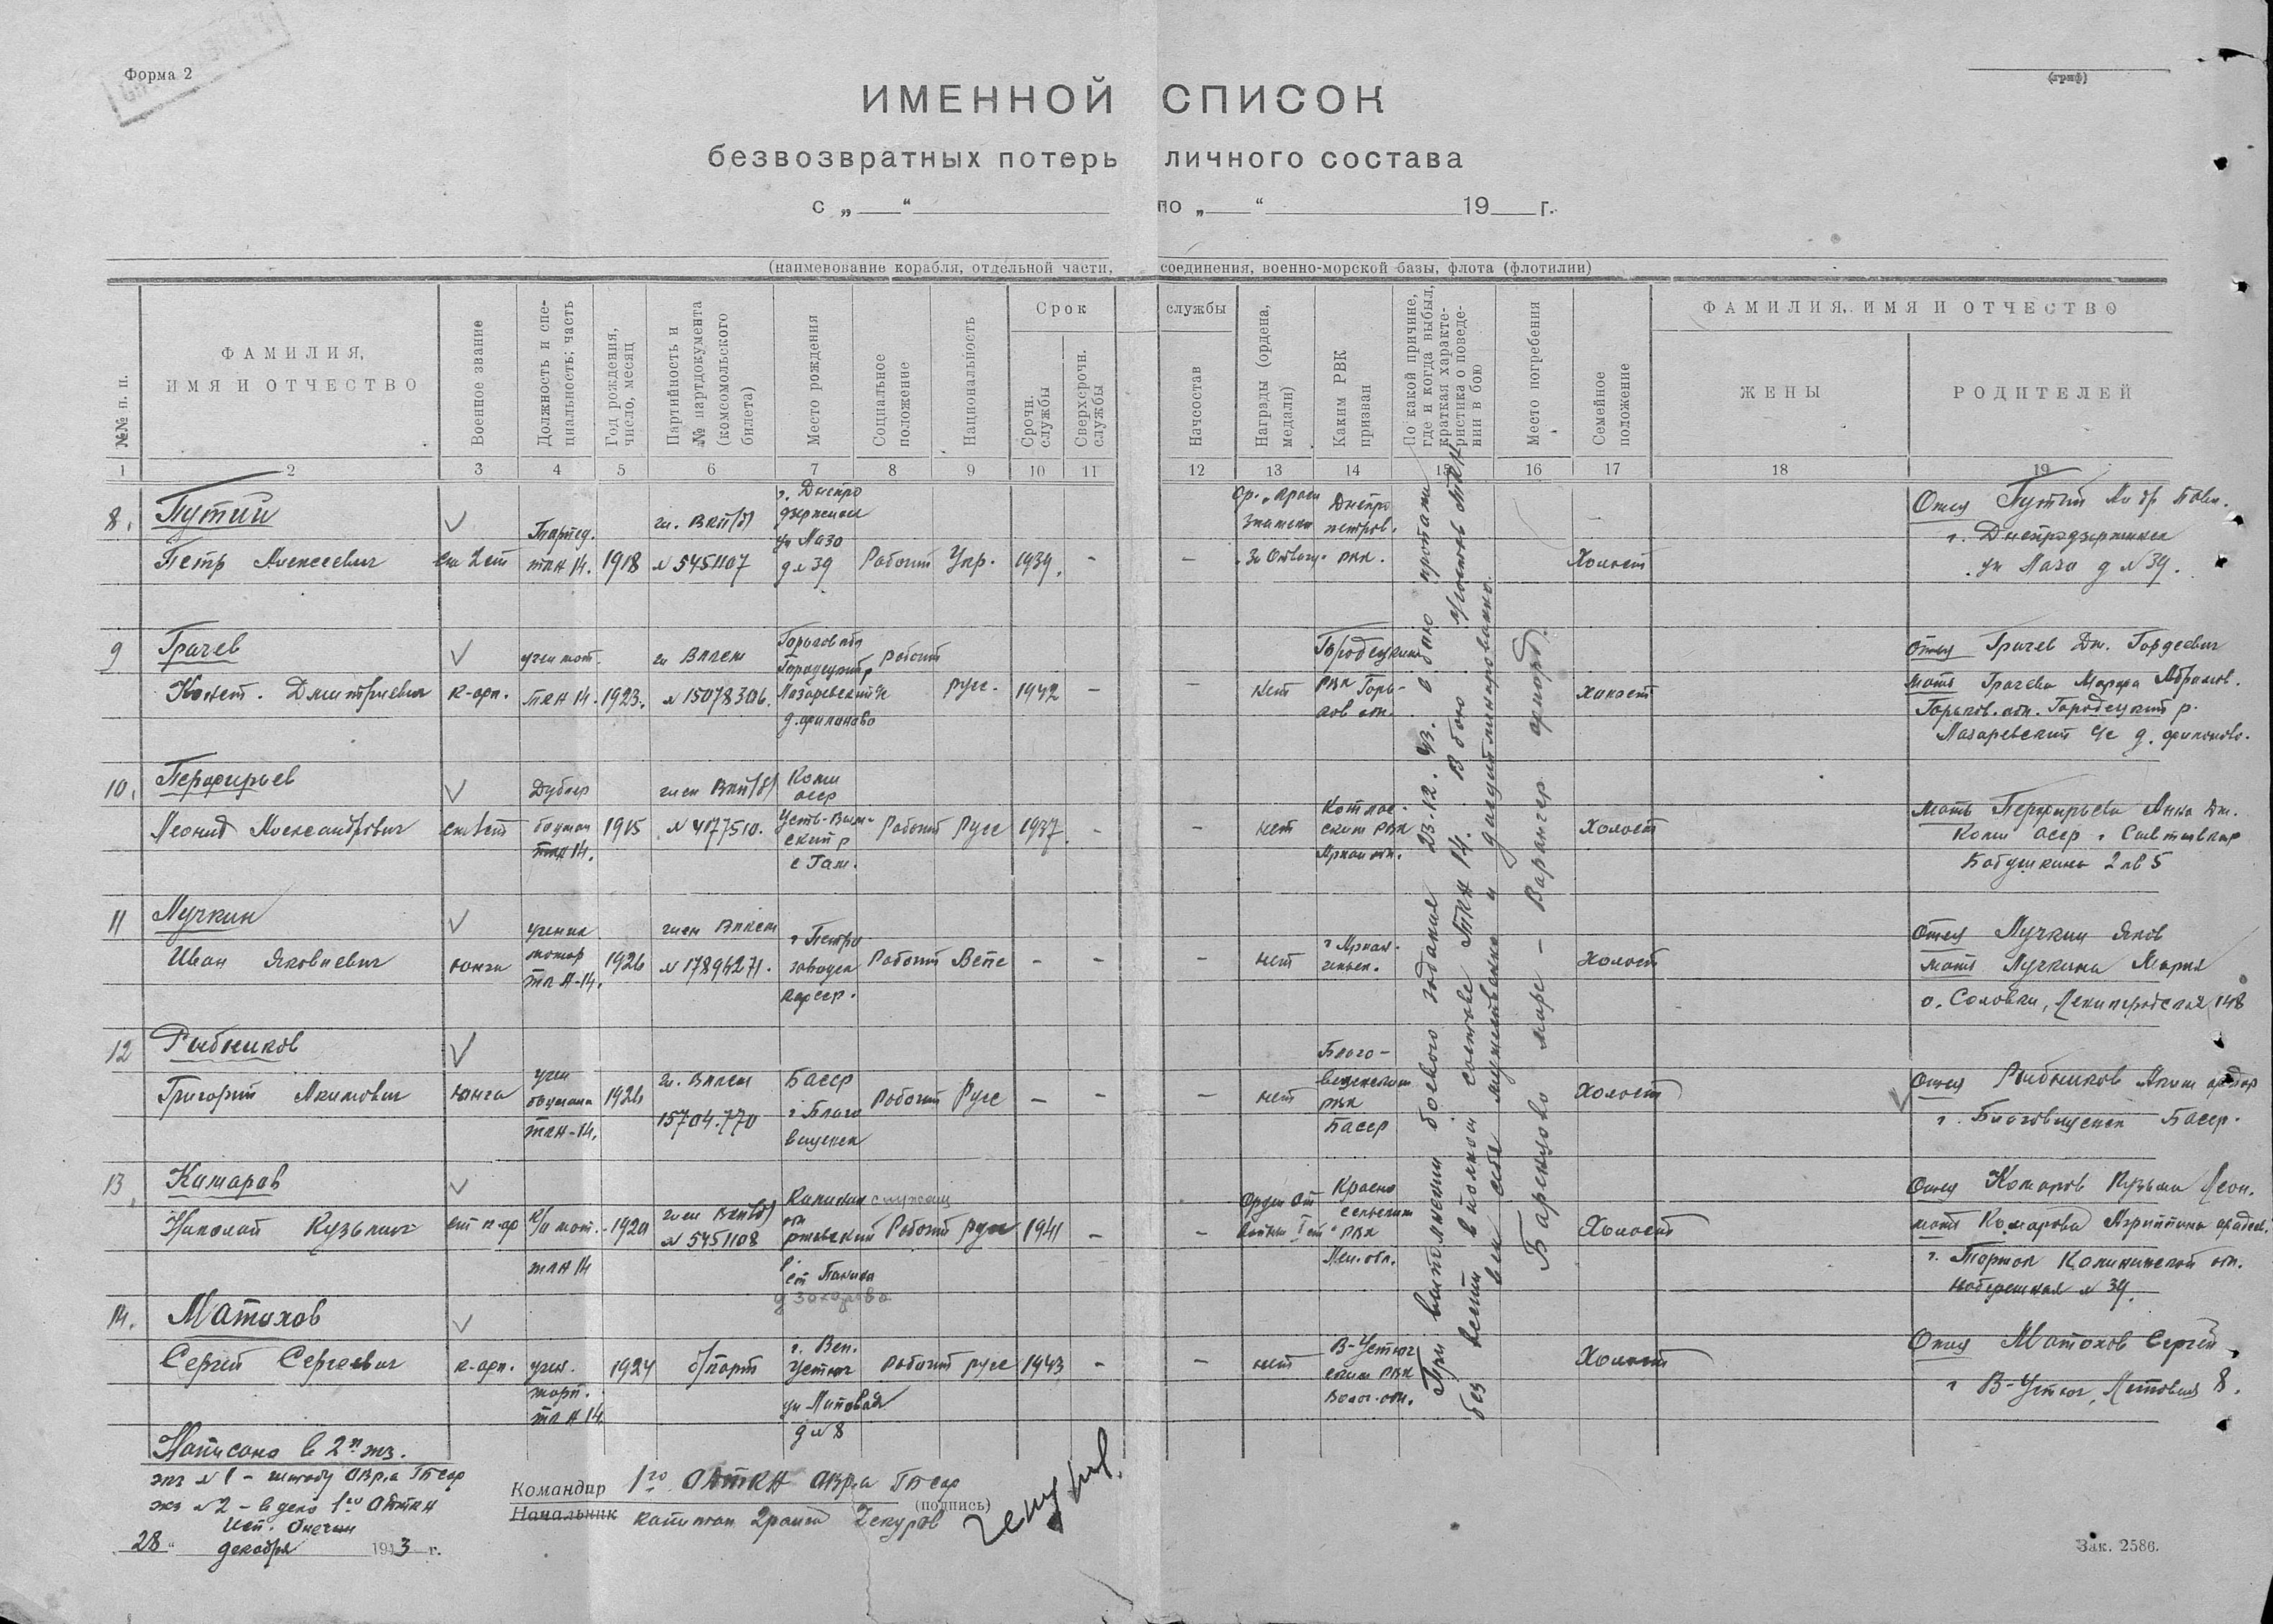 Форма 2
(гриф)
ИМЕННОЙ СПИСОК
безвозвратных потерь личного состава
с „ “ по „ “ 19 г.
(наименование корабля, отдельной части, соединения, военно-морской базы, флота (флотилии)
№№ п. п.
ФАМИЛИЯ, ИМЯ И ОТЧЕСТВО
Военное звание
Должность и специальность; часть
Год рождения, число, месяц
Партийность и № партдокумента (комсомольского билета)
Место рождения
Социальное положение
Национальность
Срок службы
Срочн. службы
Сверхсрочн. службы
Начсостав
Награды (ордена, медали)
Каким РВК призван
По какой причине, где и когда выбыл, краткая характеристика о поведении в бою
Место погребения
Семейное положение
ФАМИЛИЯ, ИМЯ И ОТЧЕСТВО
ЖЕНЫ
РОДИТЕЛЕЙ
1 2 3 4 5 6 7 8 9 10 11 12 13 14 15 16 17 18 19
8. Путий
Петр Алексеевич
ТКА 14. 1918
чл. ВКП(б)
№ 5451107
г. Днепро
дзержинск
ул Лазо
д № 39
Рабочий Укр. 1939. - -
Днепро
петров.
РВК.
Холост
Отец Путий
г. Днепродзержинск
ул Лазо д № 39.
9 Грачев
Конст. Дмитриевич
к-арн.
учен мот.
ТКА 14. 1923.
чл ВЛКСМ
№ 15078306.
Горьков обл
Городецкий р
Лазаревский с/с
д. Филоново
Рабочий
Русс. 1942 - -
нет
Городецким
РВК Горь-
ков обл.
Холост
Отец Грачев Дм. Гордеевич
Мать Грачева Марфа Абрамов.
Горьков. обл. Городецкий р.
Лазаревский с/с д. Филоново.
10. Перфирьев
Леонид Александрович
боцман
ТКА 14.
1915
член ВКП(б)
№ 4177510.
Коми
АССР
Усть-Вым-
ский р
с Гам.
Рабочий Русс 1937. - -
нет
Котлас-
ским РВК
Архан обл.
Холост
Мать Перфирьева Анна Дм.
Коми АССР г Сыктывкар
Бабушкина 2 кв 5
11 Лучкин
Иван Яковлевич
юнга
ученик
мотор
ТКА-14.
1926
член ВЛКСМ
№ 17894271.
г Петро
заводск
КФССР.
Рабочий Вепс - - -
нет
г Архан-
гельск.
Холост
Отец Лучкин Яков
Мать Лучкина Мария
о. Соловки, Ленинградская 148
12 Рыбников
Григорий Акимович
юнга
учен
боцмана
ТКА-14.
1926
чл. ВЛКСМ
15704.770
БАССР
г. Благо
вещенск
Рабочий Русс - - -
нет
Благо-
вещенским
РВК
БАССР
Холост
Отец Рыбников Аким
г. Благовещенск БАССР.
13. Камаров
Николай Кузьмич
ТКА 14
1920
член ВКП(б)
№ 5451108
Калинин
обл
Ржевский
ст Панино
служащ
Рабочий Русс 1941 - -
Орден От
Войны I ст
Красно
сельским
РВК
Лен. обл.
Холост
Отец Комаров Кузьма Леон.
Мать Комарова Агриппина
г. Торжок Калининской обл.
Набережная № 39.
14. Матохов
Сергей Сергеевич
к-арн.
учен.
торп.
ТКА 14.
1924
б/парт
г. Вел.
Устюг
ул Литовая
д № 8
Рабочий русс 1943 - -
нет
В-Устюг
ским РВК
Волог. обл.
Холост
Отец Матохов Сергей
г В-Устюг, 8.
При выполнении боевого задания 23.12.43. в бою пропали
без вести в полном составе ТКА 14. В бою личный состав ТКА
вел себя мужественно и дисциплинированно.
Баренцово море - Варангер фиорд.
Написано в 2х экз.
экз № 1 - штабу ОВРа ГБ СФ
экз № 2 - в дело 1го ОДТКА
28 декабря 1943 г.
Командир 1го ОДТКА ОВРа ГБ СФ
Начальник капитан 2 ранга Чекуров (подпись)
Чекуров.
Зак. 2586.